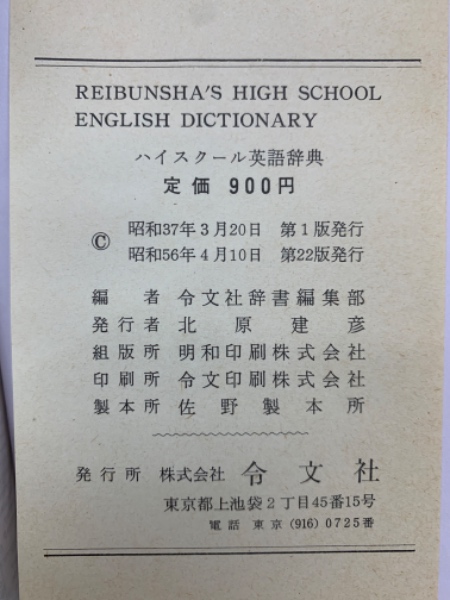 REIBUNSHA'S HIGH SCHOOL
ENGLISH DICTIONARY
ハイスクール英語辞典
定価 900円
© 昭和37年3月20日 第1版発行
昭和56年4月10日 第22版発行
編者 令文社辞書編集部
発行者 北原建彦
組版所 明和印刷株式会社
印刷所 令文印刷株式会社
製本所 佐野製本所
発行所 株式会社 令文社
東京都上池袋2丁目45番15号
電話 東京 (916) 0725番